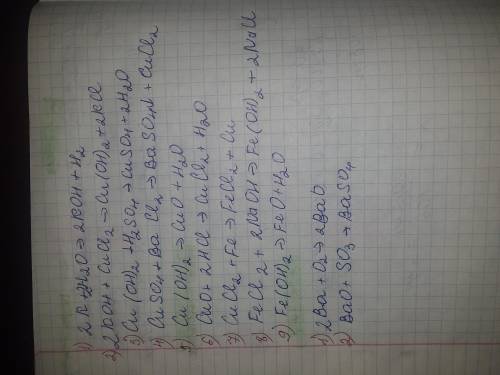 1) 2K+2H2O→2KOH+H2
2) 2KOH+CuCl2→Cu(OH)2+2KCl
3) Cu(OH)2+H2SO4→CuSO4+2H2O
4) CuSO4+BaCl2→BaSO4↓+CuCl2
5) Cu(OH)2→CuO+H2O
6) CuO+2HCl→CuCl2+H2O
7) CuCl2+Fe→FeCl2+Cu
8) FeCl2+2NaOH→Fe(OH)2+2NaCl
9) Fe(OH)2→FeO+H2O
1) 2Ba+O2→2BaO
2) BaO+SO3→BaSO4